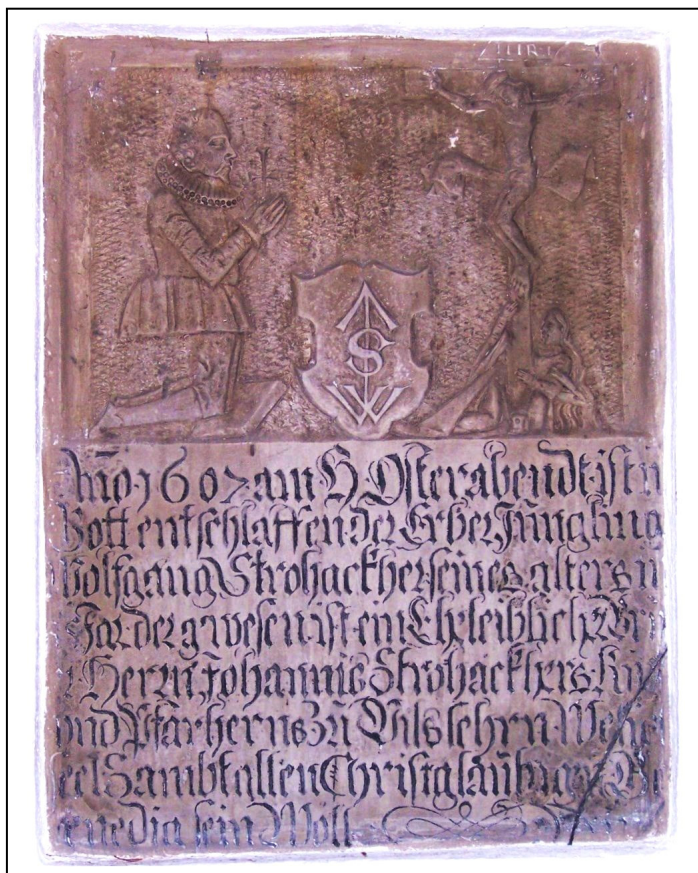 INRI
S
W
Año 1607 am H Osterabendt ist in
Gott entschlaffen der Erber Jüngling
Wolfgang Strohackher seines alters
Jar der gwesen ist ein Ehleiblicher
Herrn Johannis Strohackhers
und Pfarherns Zu Vils
seel Sambt allen Christglaubigen
genedig sein Woll